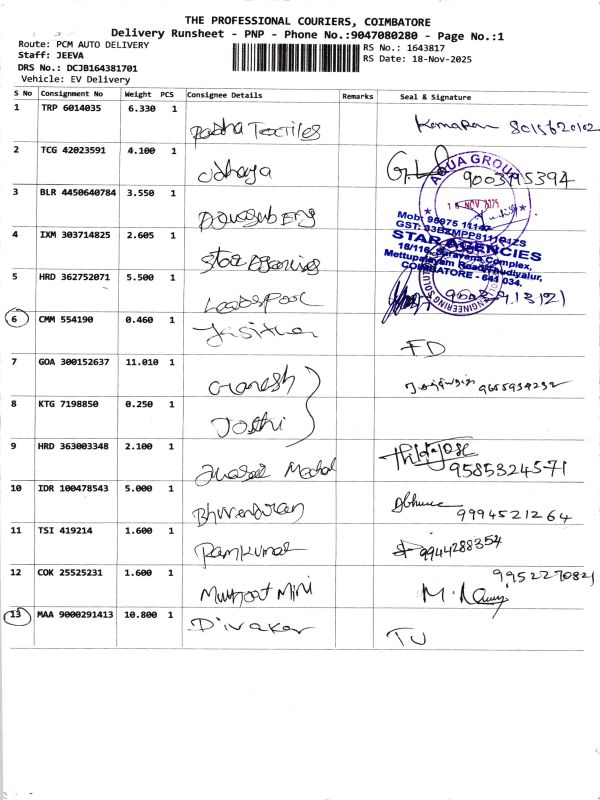 THE PROFESSIONAL COURIERS, COIMBATORE
Delivery Runsheet - PNP - Phone No.:9047080280 - Page No.:1
Route: PCM AUTO DELIVERY
RS No.: 1643817
Staff: JEEVA
RS Date: 18-Nov-2025
DRS No.: DCJB164381701
Vehicle: EV Delivery
S No Consignment No Weight PCS Consignee Details Remarks Seal & Signature
1 TRP 6014035 6.330 1
Textiles
2 TCG 42023591 4.100 1
Udhaya 9003195394
AQUA GROUP
3 BLR 4450640784 3.550 1
NOV 2025
Mob: 98975
GST:
STAR AGENCIES
18/116, Saravana Complex,
Mettupalayam Road, Thudiyalur,
COIMBATORE - 641 034.
4 IXM 303714825 2.605 1
Star Agencies
5 HRD 362752071 5.500 1
6 CMM 554190 0.460 1
FD
7 GOA 300152637 11.010 1
Ganesh
8 KTG 7198850 0.250 1
Joshi
9 HRD 363003348 2.100 1
9585324571
10 IDR 100478543 5.000 1
9994521264
11 TSI 419214 1.600 1
Ramkumar 9944288354
12 COK 25525231 1.600 1
9952270821
Mini
13 MAA 9000291413 10.800 1
Divakar